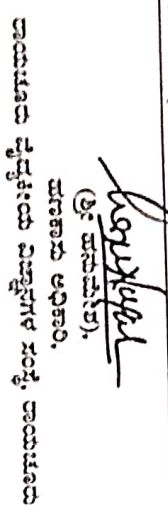 (ಶ್ರೀ ಹನುಮೇಶ),
ಹಣಕಾಸು ಅಧಿಕಾರಿ,
ರಾಯಚೂರು ವೈದ್ಯಕೀಯ ವಿಜ್ಞಾನಗಳ ಸಂಸ್ಥೆ, ರಾಯಚೂರು